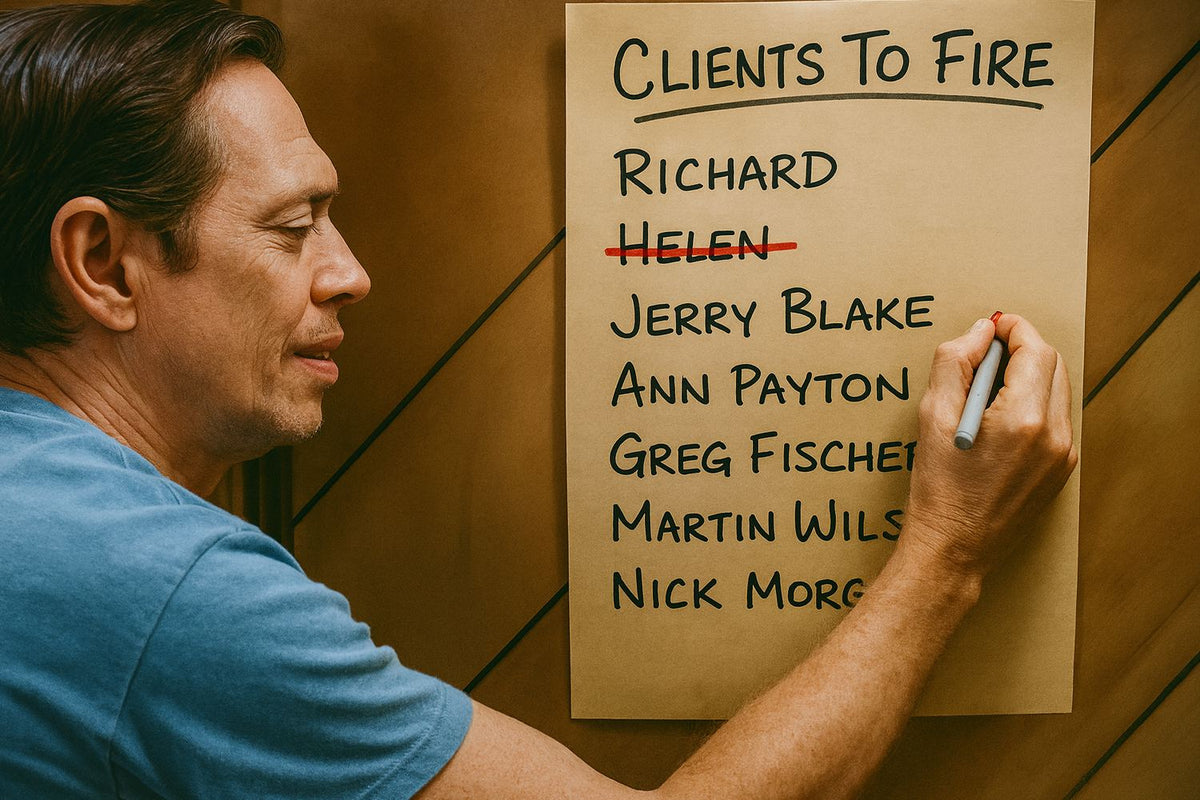 CLIENTS TO FIRE
RICHARD
HELEN
JERRY BLAKE
ANN PAYTON
GREG FISCHER
MARTIN WILS
NICK MORG